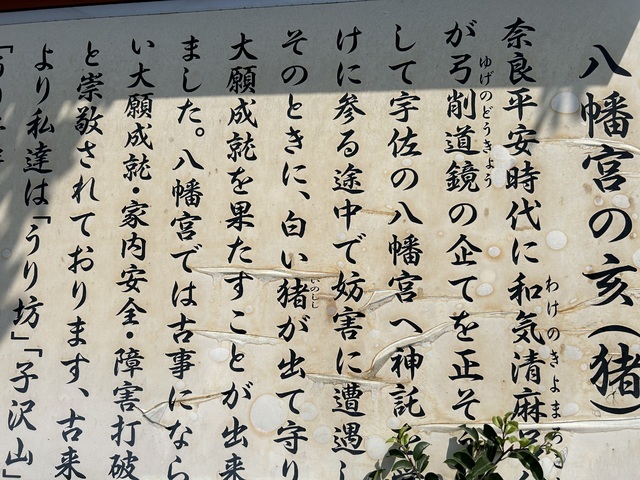 八幡宮の亥（猪）
奈良平安時代に和気清麻
わけのきよまろ
が弓削道鏡の企てを正そ
ゆげのどうきょう
して宇佐の八幡宮へ神託
けに参る途中で妨害に遭遇し
そのときに、白い猪が出て守り
いのしし
大願成就を果たすことが出来
ました。八幡宮では古事になら
い大願成就・家内安全・障害打破
と崇敬されております、古来
より私達は「うり坊」「子沢山」